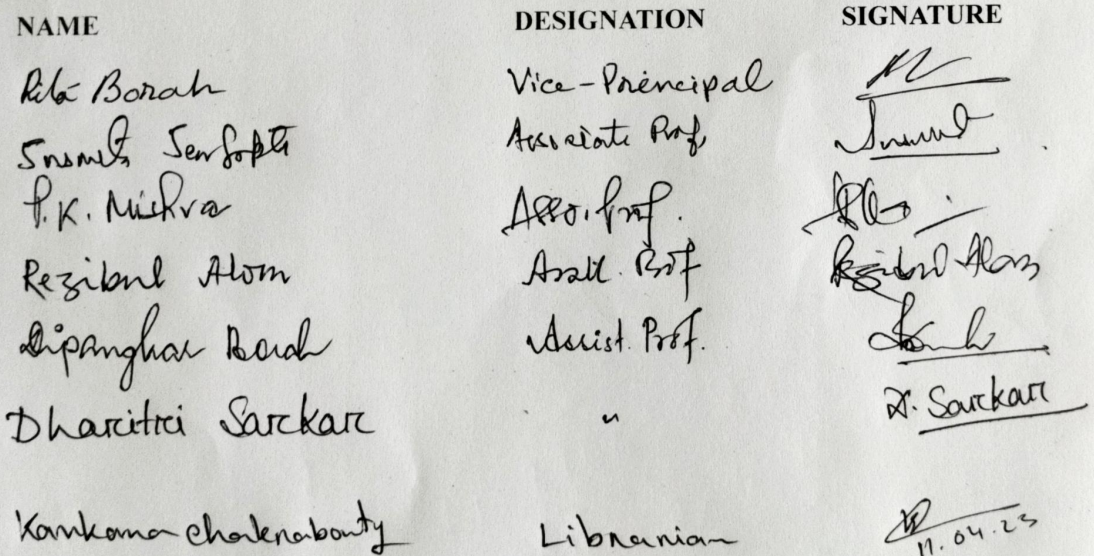 NAME DESIGNATION SIGNATURE
Rita Borah Vice-Principal
Susmita Sengupta Associate Prof
P.K. Mishra Asso. Prof.
Rezibul Alom Asstt. Prof Rezibul Alom
Dipanghar Borah Assist. Prof.
Dharitri Sarkar " D. Sarkar
Kankana Chakraborty Librarian 11.04.23